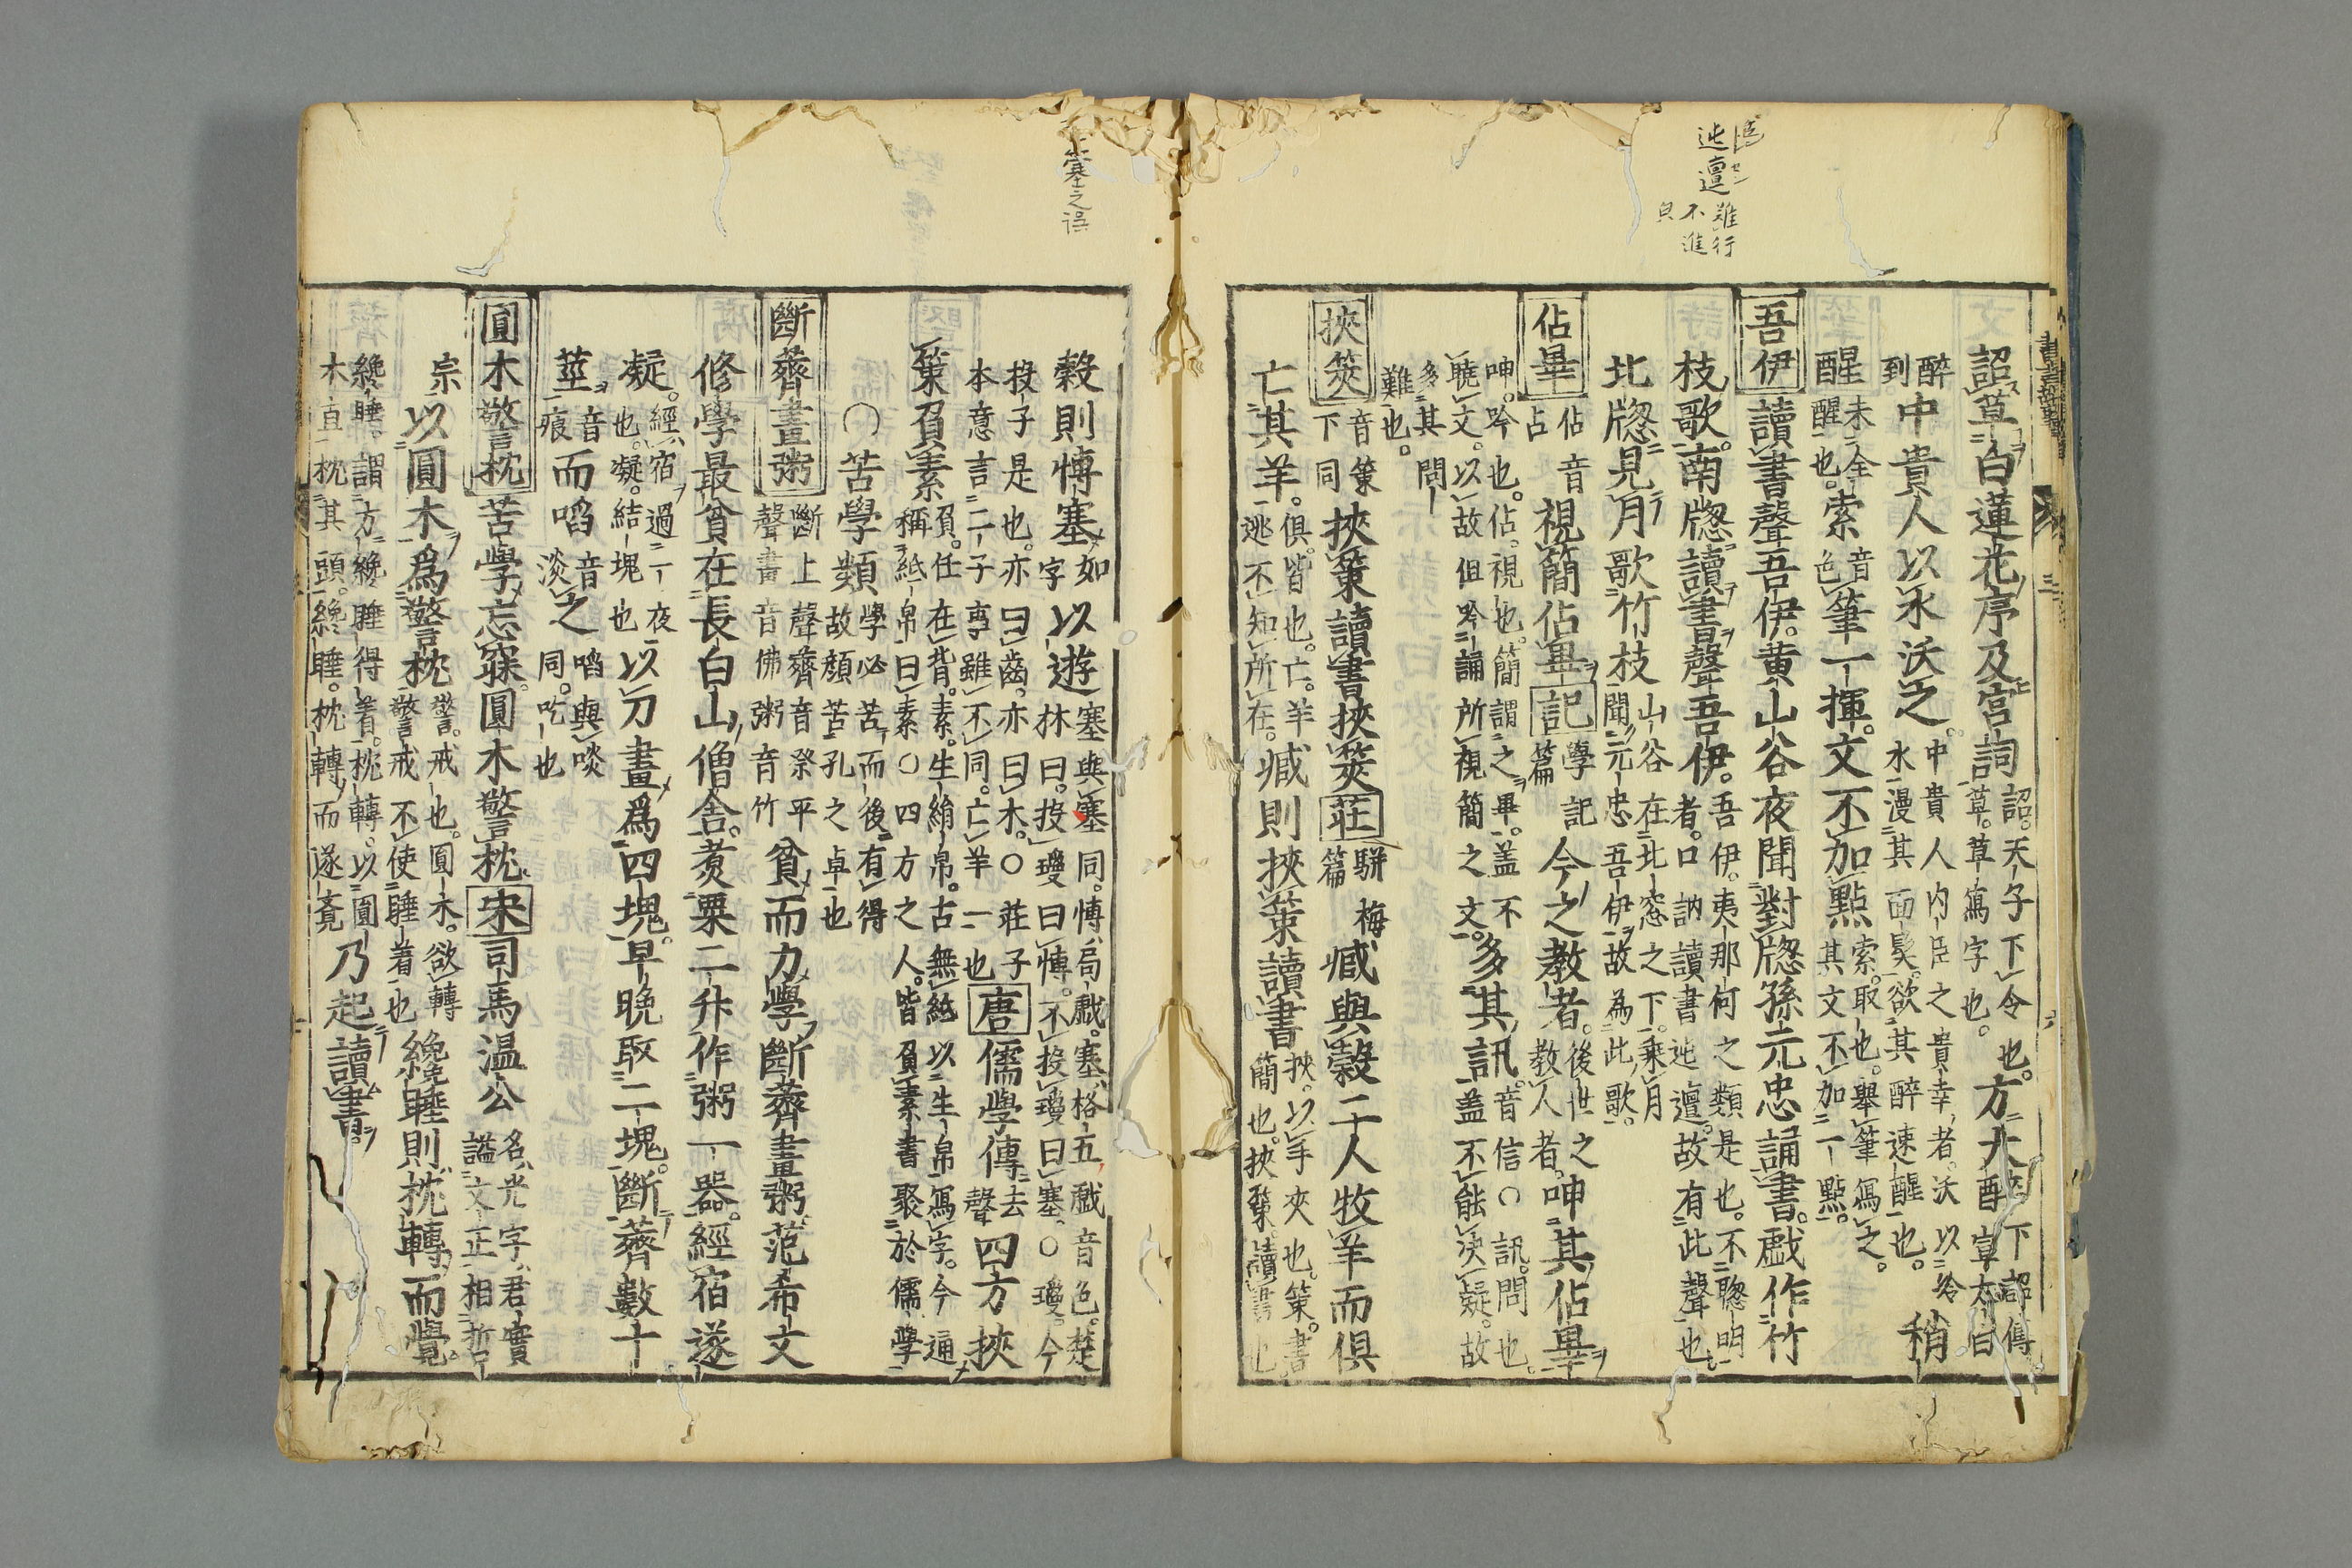 迍邅
難行
不進
㒵
詔草白蓮花序及宮詞
詔。天子下令也。下詔傳
草。草寫字也。
方大醉
太白
醉中貴人以水沃之
中貴人内臣之貴幸者。沃以冷
到水漫其面髮。欲其醉速醒也。
稍
醒
未全
醒也。
索
音
色
筆一揮。文不加點
索。取也。舉筆寫之。
其文不加一點。
吾伊
讀書聲吾伊。黄山谷夜聞對牕孫元忠誦書。戯作竹
枝歌。南牕讀書聲吾伊。
吾伊。夷那何之類是也。不聦明
者。口訥讀書迍邅。故有此聲也
北牕見月歌竹枝
山谷在北窓之下。乘月
聞元忠吾伊故為此歌。
佔畢
佔音
占
視簡佔畢
記
學記
篇
今之教者。
後世之
教人者。
呻其佔畢
呻。吟也。佔。視也。簡謂之畢。盖不
曉文。以故但吟誦所視簡之文。
多其訊。
音信○訊。問也。
盖不能決疑。故
多其問
難也。
挾筴
音策
下同
挾策讀書挾筴
莊
騈梅
篇
臧與穀二人牧羊而俱
亡其羊。
俱。皆也。亡。羊
逃不知所在。
臧則挾策讀書
挾。以手夾也。策。書
簡也。挾策。讀書也
塞之誤
穀則愽塞
如
字
以遊
塞與塞同。愽局戯。塞格五戯音色。楚
抹曰。投瓊曰愽。不投瓊曰塞。○瓊。今
投子是也。亦曰齒。亦曰木。○莊子
本意言二子事雖不同。亡羊一也
唐
儒學傳
去
聲
四方挾
策負素
負。任在背。素。生絹帛。古無紙以生帛寫字。今通
稱紙帛曰素○四方之人。皆負素書聚於儒學
○苦學類
學必苦而後有得
故顔苦孔之卓也
斷虀畫粥
斷上聲虀音祭平
聲畫音佛粥音竹
貧而力學斷虀畫粥范希文
修學最貧在長白山僧舎。煑粟二升作粥一器。經宿遂
凝。
經宿過一夜
也。凝。結塊也
以刀畫爲四塊。早晚取二塊。斷虀數十
莖
音
痕
而啗
音
淡
之
啗與啖
同。吃也
圓木警枕
苦學忘寐圓木警枕
宋
司馬温公
名光字君實
諡文正相哲
宗
以圓木爲警枕
警。戒也。圓木。欲轉
警戒不使睡着也
纔睡則枕轉而覺。
纔睡。謂方纔睡得着。枕轉。以圓
木直枕其頭。纔睡。枕轉而遂覺
乃起讀書。